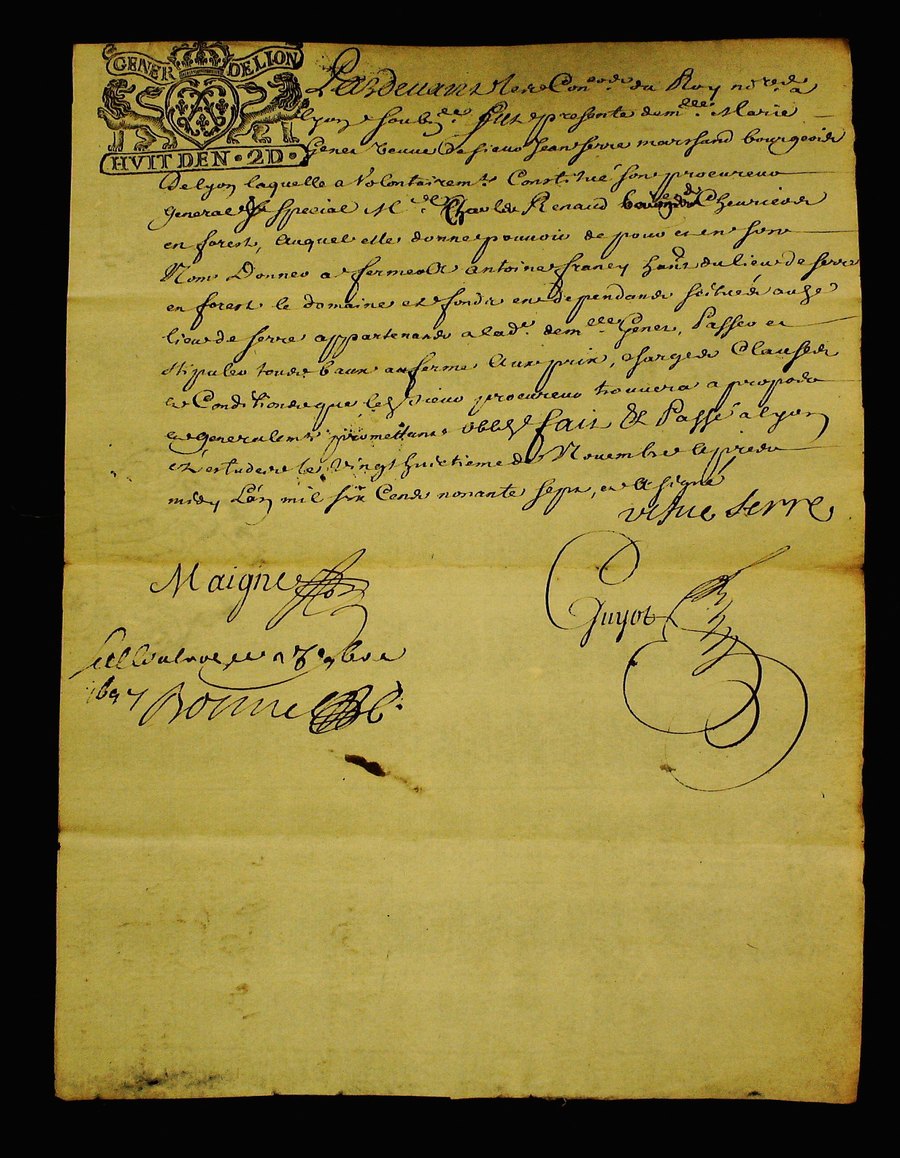 GENER DE LION
HVIT DEN · 2D ·
Pardevant les Con.ers du Roy no.res à
lyon soub.nez fut presente dam.lle Marie
Genet veuve de sieur Jean Serre marchand bourgeois
de lyon laquelle a volontairem.t Constitué son procureur
general & special M.e Charles Renaud
en forest, auquel elle donne pouvoir de pour et en son
Nom Donner a ferme à Antoine franey du lieu de Serre
en forest le domaine et fonds en dependands scitués au
lieu de serre appartenands a lad.e dem.lle Genet, Passer et
stipuler tous baux a ferme Aux prix, charges Clauses
et Conditions que led. sieur procureur trouvera a propos
et generalem.t promettant oblig. fait & Passé a lyon
ez estudes le vingt huictieme de Novembre apres
midy L'an mil six Cends nonante sept, et A signé
vefue serre
Maigne
Guyot
Scellé a Lyon ce 9bre
1697
Bonne